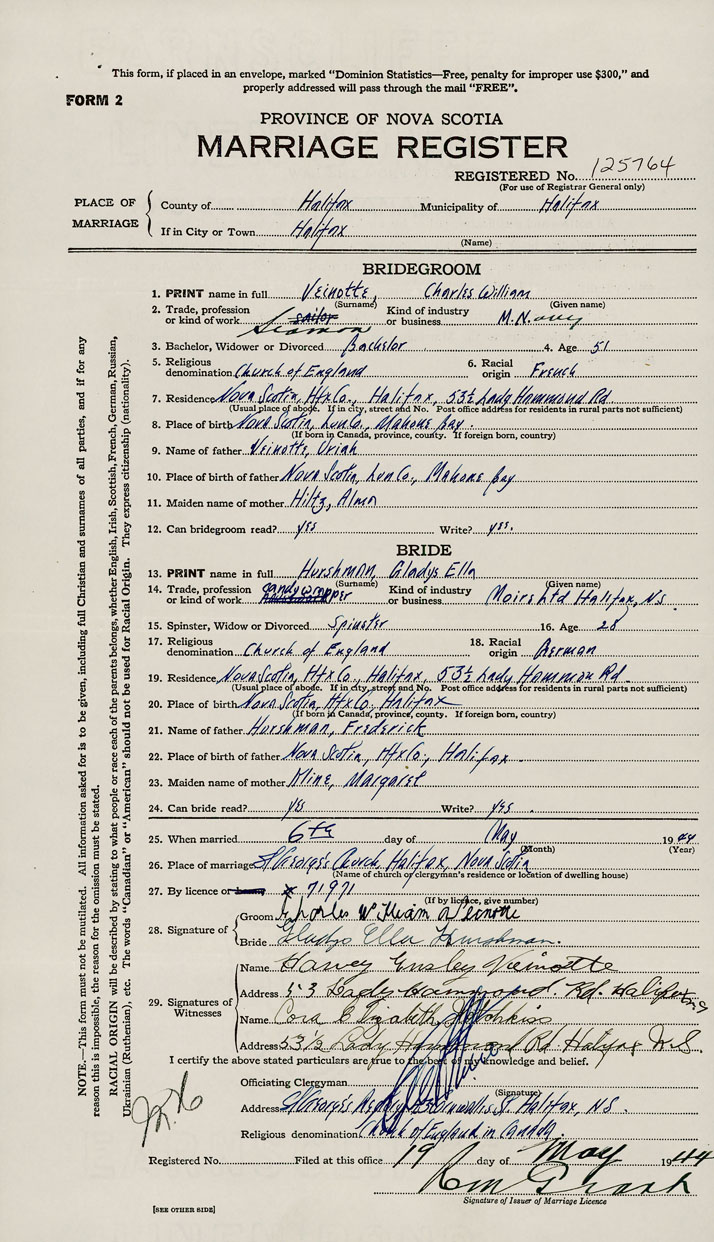 This form, if placed in an envelope, marked "Dominion Statistics—Free, penalty for improper use $300," and
properly addressed will pass through the mail "FREE".
FORM 2
PROVINCE OF NOVA SCOTIA
MARRIAGE REGISTER
REGISTERED No. 125764
(For use of Registrar General only)
PLACE OF MARRIAGE
County of Halifax Municipality of Halifax
If in City or Town Halifax
(Name)
BRIDEGROOM
1. PRINT name in full Veinotte, Charles William
(Surname) (Given name)
2. Trade, profession or kind of work sailor Seaman Kind of industry or business M.N. avy
3. Bachelor, Widower or Divorced Bachelor 4. Age 51
5. Religious denomination Church of England 6. Racial origin French
7. Residence Nova Scotia, Hfx Co., Halifax, 53½ Lady Hammond Rd
(Usual place of abode. If in city, street and No. Post office address for residents in rural parts not sufficient)
8. Place of birth Nova Scotia, Lun Co., Mahone Bay.
(If born in Canada, province, county. If foreign born, country)
9. Name of father Veinotte, Uriah
10. Place of birth of father Nova Scotia, Lun Co., Mahone Bay
11. Maiden name of mother Hiltz, Alma
12. Can bridegroom read? yes Write? yes.
BRIDE
13. PRINT name in full Hurshman, Gladys Ella
(Surname) (Given name)
14. Trade, profession or kind of work candy wrapper Kind of industry or business Moirs Ltd Halifax, N.S.
15. Spinster, Widow or Divorced Spinster 16. Age 28
17. Religious denomination Church of England 18. Racial origin German
19. Residence Nova Scotia, Hfx Co., Halifax, 53½ Lady Hammon Rd
(Usual place of abode. If in city, street and No. Post office address for residents in rural parts not sufficient)
20. Place of birth Nova Scotia, Hfx Co., Halifax
(If born in Canada, province, county. If foreign born, country)
21. Name of father Hurshman, Frederick
22. Place of birth of father Nova Scotia, Hfx Co., Halifax.
23. Maiden name of mother Kline, Margaret
24. Can bride read? yes Write? yes.
25. When married 6th day of May 1944
(Month) (Year)
26. Place of marriage St George's Church, Halifax, Nova Scotia
(Name of church or clergyman's residence or location of dwelling house)
27. By licence or x 71971
(If by licence, give number)
28. Signature of
Groom Charles William Veinotte
Bride Gladys Ella Hurshman.
29. Signatures of Witnesses
Name Harvey Ensley Veinotte
Address 53 Lady Hammond. Rd. Halifax
Name Cora Elizabeth Hotchkiss
Address 53½ Lady Hammond Rd Halifax N.S.
I certify the above stated particulars are true to the best of my knowledge and belief.
Officiating Clergyman
(Signature)
Address St George's Cornwallis St. Halifax, N.S.
Religious denomination Church of England in Canada.
Registered No. Filed at this office 19 day of May 1944
Signature of Issuer of Marriage Licence
[SEE OTHER SIDE]
NOTE.—This form must not be mutilated. All information asked for is to be given, including full Christian and surnames of all parties, and if for any
reason this is impossible, the reason for the omission must be stated.
RACIAL ORIGIN will be described by stating to what people or race each of the parents belongs, whether English, Irish, Scottish, French, German, Russian,
Ukrainian (Ruthenian), etc. The words "Canadian" or "American" should not be used for Racial Origin. They express citizenship (nationality).